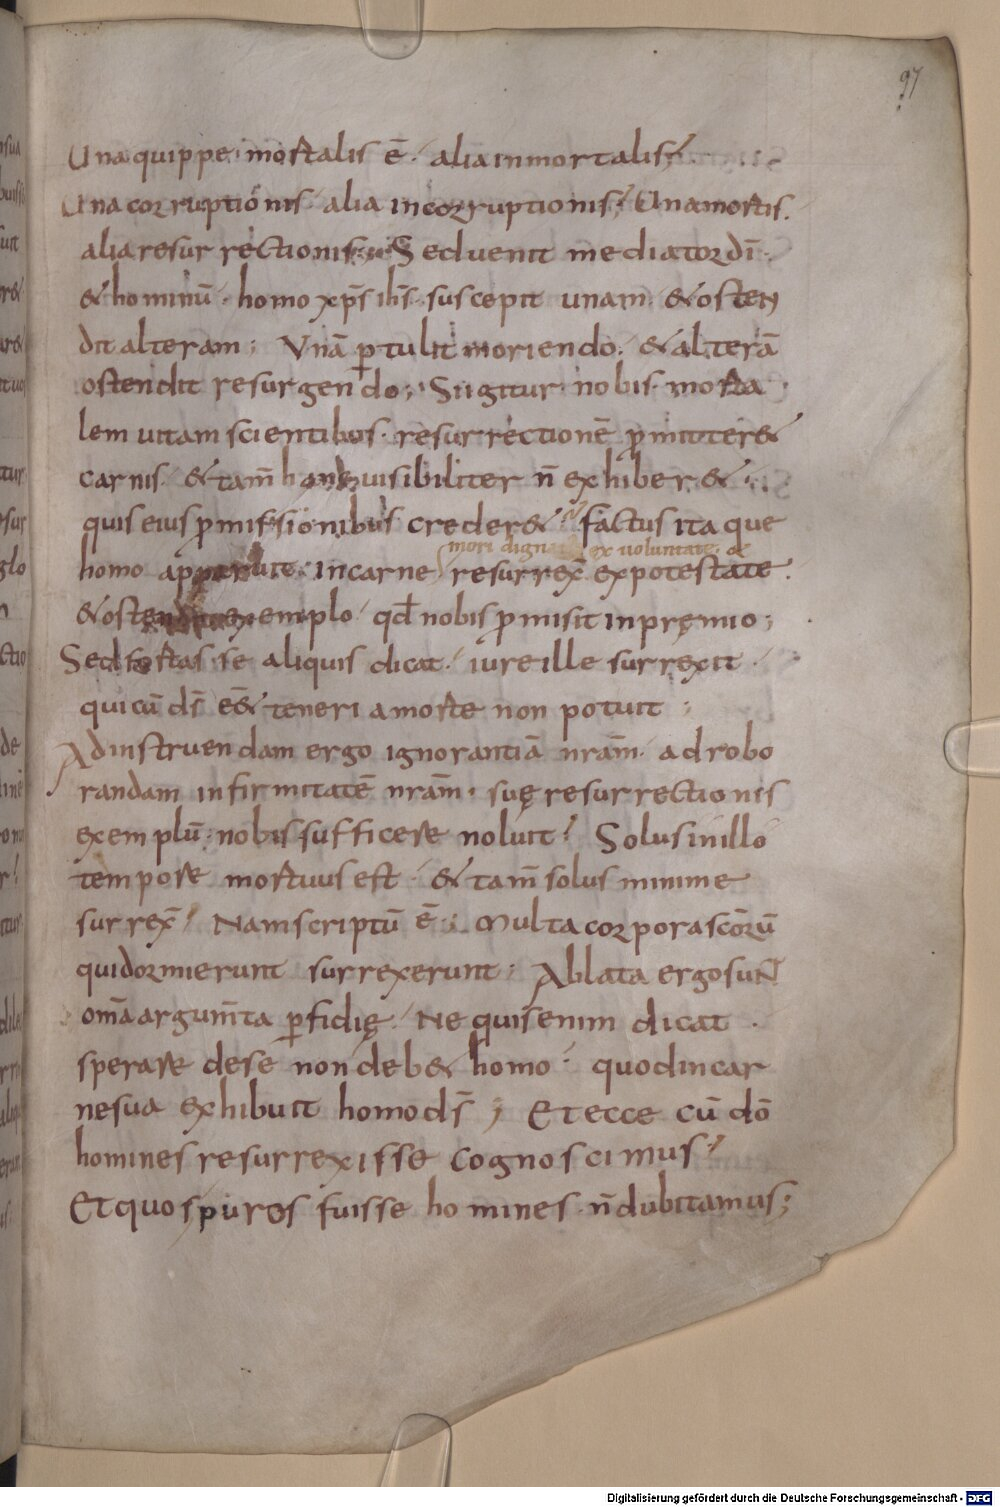 97
Una quippe mortalis ē· alia inmortalis·
Una corruptionis· alia incorruptionis· Una mortis·
alia resurrectionis· Sed uenit mediator dī·
& hominū· homo xp̄s ih̄s· suscepit unam· & osten
dit alteram; Vnā ꝑtulit moriendo· & alterā
ostendit resurgendo; Si igitur nobis morta
lem uitam scientibus· resurrectionē ꝓmitter&
carnis· & tam̄ hanc uisibiliter n̄ exhiber&·
quis eius ꝓmissionibus creder&· factus itaque
mori dign ex uoluntate· &
homo apparuit· in carne resurrex̄ ex potestate·
& ostendit exemplo· qđ nobis ꝓmisit in pręmio;
Sed fortasse aliquis dicat· iure ille surrexit·
qui cū d̄s ēē& teneri a morte non potuit;
Ad instruendam ergo ignorantiā nrām· ad robo
randam infirmitatē nrām· suę resurrectionis
exemplū· nobis sufficere noluit· Solus in illo
tempore mortuus est· & tam̄ solus minime
surrex̄· Nam scriptū ē· Multa corpora scōrū
qui dormierunt surrexerunt; Ablata ergo sunt
om̄a argum̄ta ꝑfidię· Ne quis enim dicat·
sperare de se non deb& homo· quod in car
ne sua exhibuit homo d̄s; Et ecce cū dō
homines resurrexisse cognoscimus·
Et quos puros fuisse homines n̄ dubitamus;
Digitalisierung gefördert durch die Deutsche Forschungsgemeinschaft - DFG